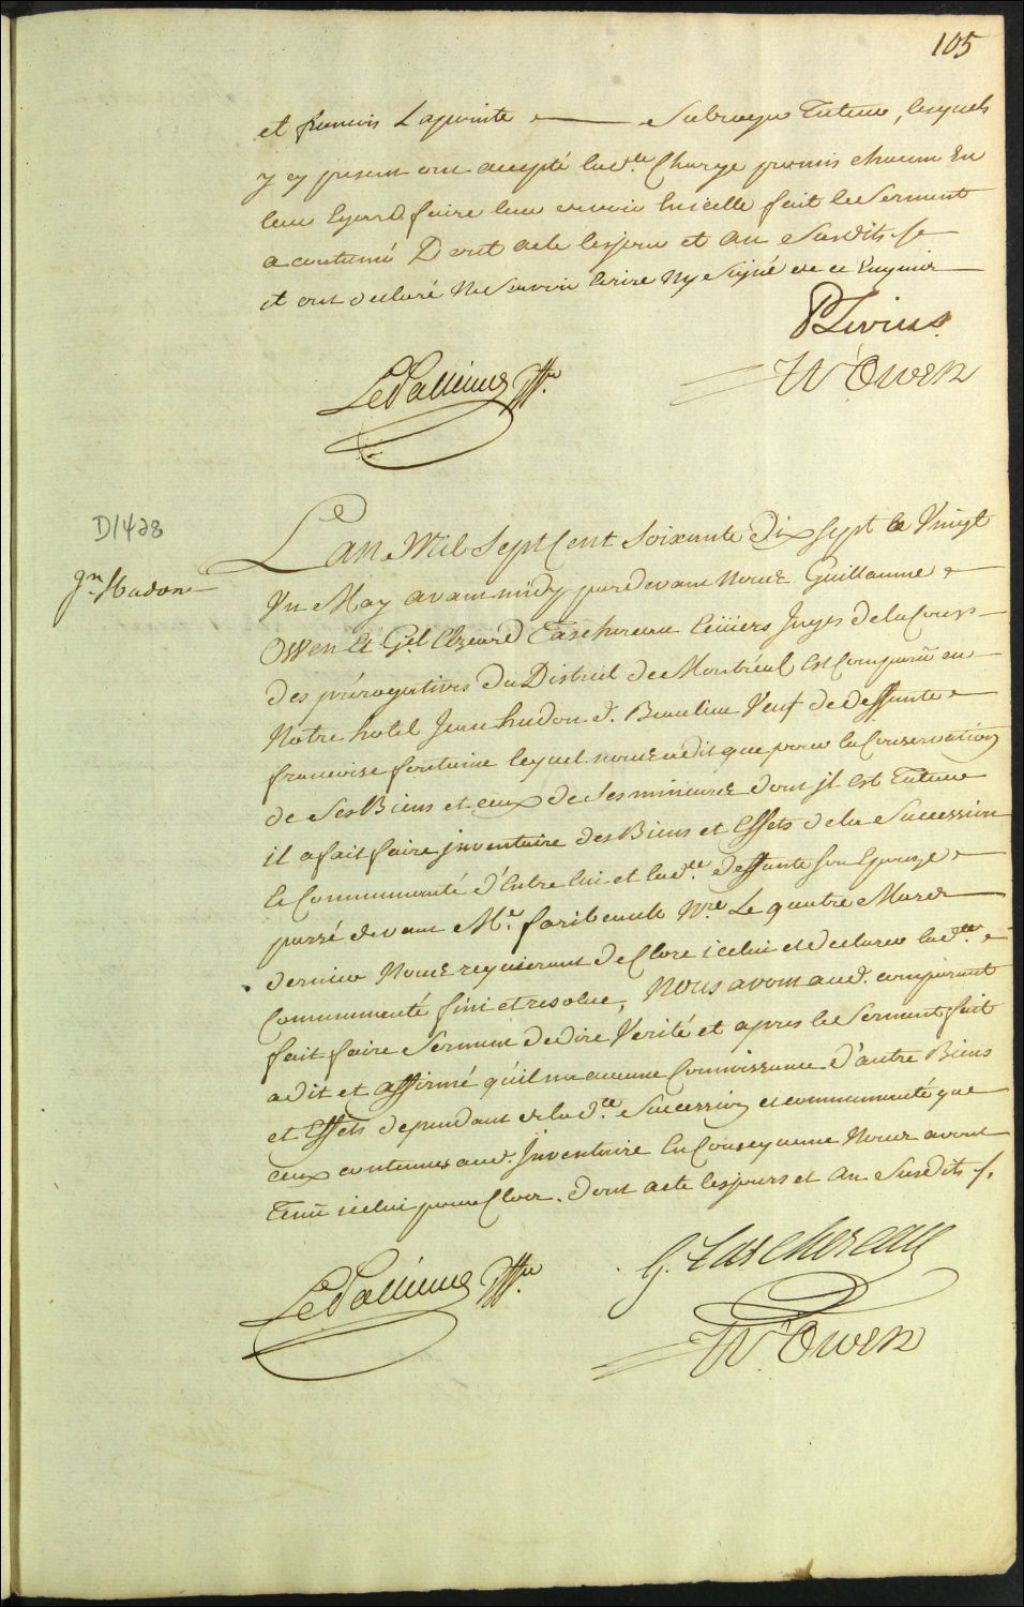 105
et francois Lapointe — Subroge Tuteur, lesquels
y cy present ont accepté lad.te Charge promis chacun En
leur Egard faire leur devoir Enicelle fait le Serment
acoutumé Dont acte lesjour et An Susdits
et ont declaré Ne Savoir Ecrire Ny Signé de ce Enquis
PLivius
W Owen
LePallieur Gffier
D1428
Jn Hudon
Lan Mil Sept Cent Soixante dix Sept le Vingt
Un May avant midy pardevant Nous Guillaume
Owen Et Gel Elzeard Taschereau Ecuiers Juges de la Cour
des prérogatives du District de Montréal Est Comparü en
Notre hotel Jean hudon d. Beaulieu Veuf de deffunte
francoise fontaine lequel nous a dit que pour la Conservation
de Ses Biens et ceux de Ses mineurs dont jl Est Tuteur
il a fait faire jnventaire des Biens et Effets de la Succession
Communauté d'Entre lui et lad.te deffunte Son Epouse
passé devant Me. faribault Nre Le quatre Mars
dernier Nous requierant de Clore icelui et declarer lad.te
Communauté fini et resolue, Nous avons aud. comparant
fait faire Serment de dire Verité et apres le Serment fait
a dit et affirmé qu'il n'a aucune Connoissance d'autre Biens
et Effets dependant de lad.te Succession et communauté que
ceux contenus aud. Jnventaire En Consequence Nous avons
Tenü icelui pour Clos. dont acte lesjours et An Susdits
G. Taschereau
LePallieur Gffier
W. Owen